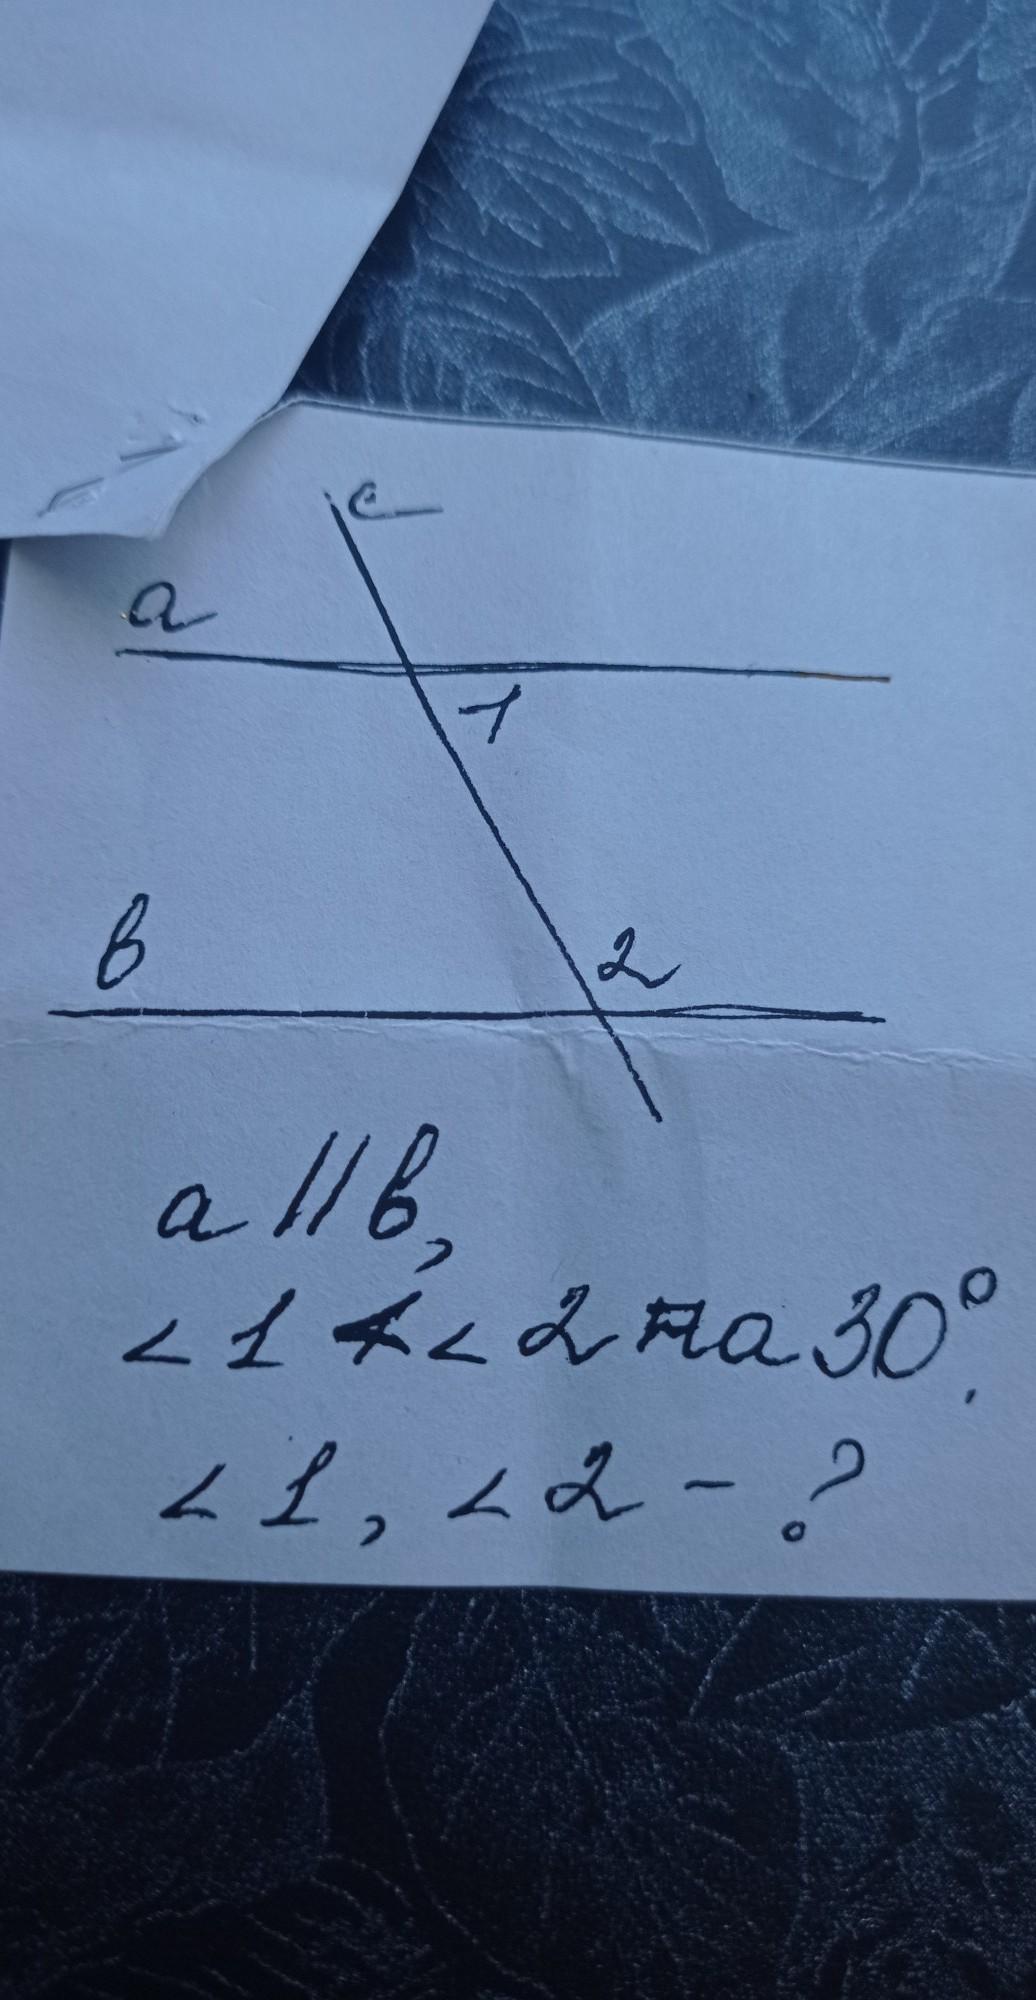 c
a
1
в
2
a || в,
∠1 < ∠2 на 30°.
∠1, ∠2 - ?